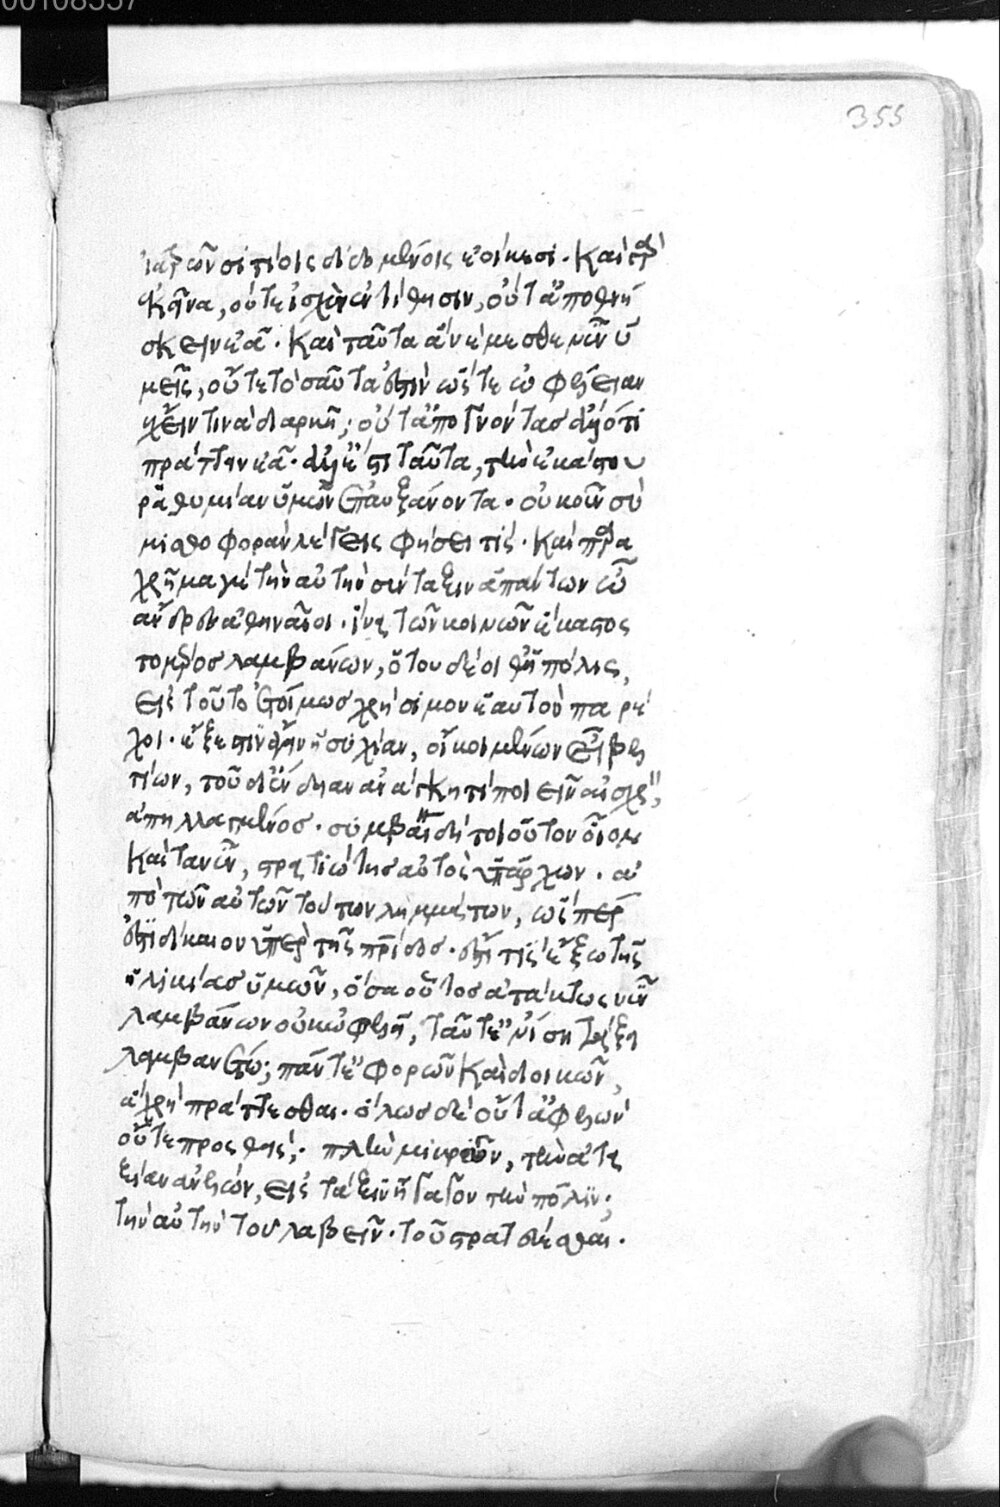 00108337
355
ἰατρῶν σιτίοις διδομένοις ἐοίκασι. Καὶ γὰρ
ἐκεῖνα, οὔτε ἰσχὺν ἐντίθησιν, οὔτ' ἀποθνή
σκειν ἐᾷ. Καὶ ταῦτα ἃ νέμεσθε νῦν ὑ
μεῖς, οὔτε τοσαῦτα ἐστὶν ὥστε ὠφέλειαν
ἔχειν τινὰ διαρκῆ, οὔτ' ἀπογνόντας ἄλλό τι
πράττειν ἐᾷ. ἀλλ' ἔστι ταῦτα, τὴν ἑκάστου
ῥαθυμίαν ὑμῶν ἐπαυξάνοντα. οὐκοῦν σὺ
μισθοφορὰν λέγεις φήσει τίς. Καὶ παρα
χρῆμα γε τὴν αὐτὴν σύνταξιν ἁπάντων ὦ
ἄνδρες ἀθηναῖοι. ἵνα τῶν κοινῶν ἕκαστος
τὸ μέρος λαμβάνων, ὅτου δέοιθ' ἡ πόλις,
εἰς τοῦτο ἑτοίμως χρήσιμον ἑαυτὸν παρέ
χοι. ἔξεστιν ἄγειν ἡσυχίαν, οἴκοι μένων εἶ βελ
τίων, τοῦ δι' ἔνδειαν ἀνάγκῃ τι ποιεῖν αἰσχρὸν,
ἀπηλλαγμένος. συμβαίνει τι τοιοῦτον οἷον
καὶ τανῦν, στρατιώτης αὐτὸς ὑπάρχων. ἀ
πὸ τῶν αὐτῶν τούτων λημμάτων, ὥσπερ
ἐστὶ δίκαιον ὑπὲρ τῆς πατρίδος. ἔστι τις ἔξω τῆς
ἡλικίας ὑμῶν, ὅσα οὗτος ἀτάκτως νῦν
λαμβάνων οὐκ ὠφελεῖ, ταῦτ' ἐν ἴσῃ τάξει
λαμβανέτω; πάντ' ἐφορῶν καὶ διοικῶν,
ἃ χρὴ πράττεσθαι. ὅλως δὲ οὔτ' ἀφελὼν
οὔτε προσθεὶς, πλὴν μικρῶν, τὴν ἀτα
ξίαν ἀνελὼν, εἰς τάξιν ἤγαγον τὴν πόλιν,
τὴν αὐτὴν τοῦ λαβεῖν. τοῦ στρατεύεσθαι.